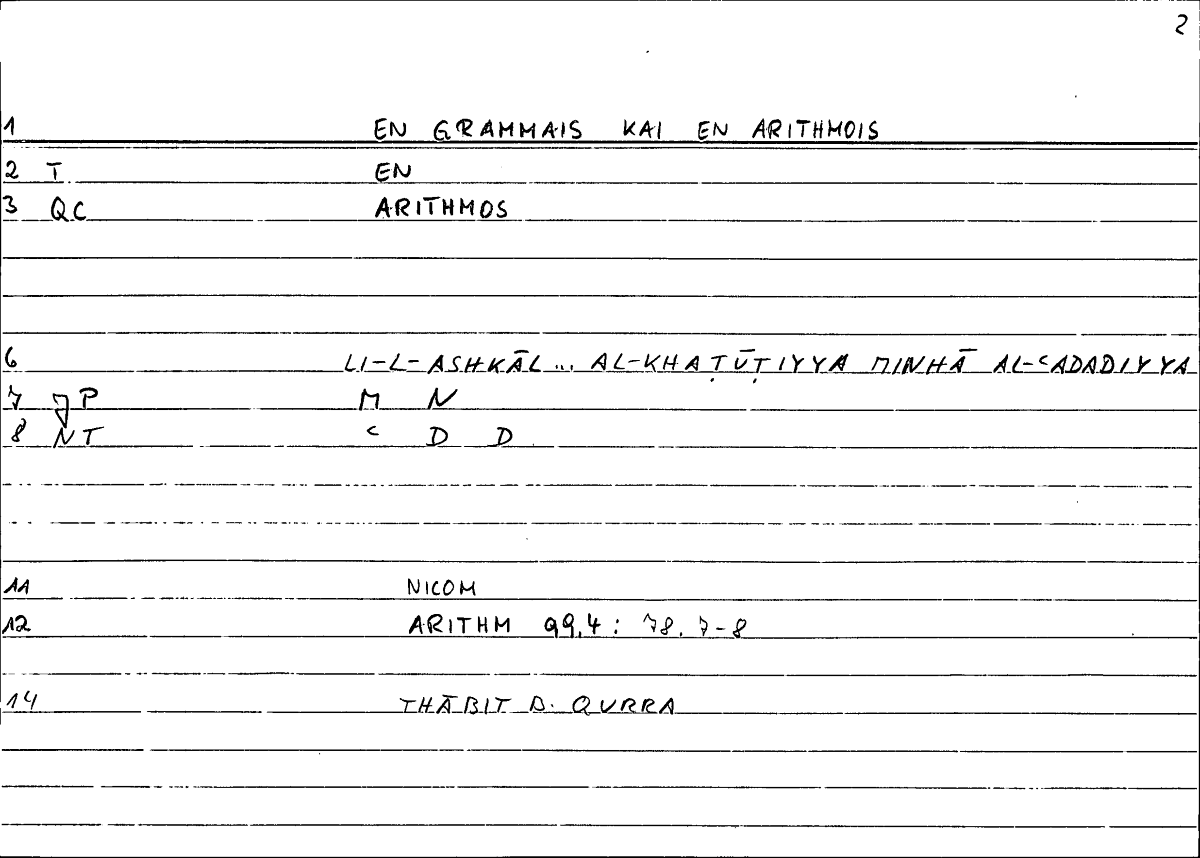 2
1 EN GRAMMAIS KAI EN ARITHMOIS
2 T EN
3 QC ARITHMOS
6 LI-L-ASHKĀL... AL-KHAṬŪṬIYYA MINHĀ AL-ʿADADIYYA
7 JP M N
8 NT ʿ D D
11 NICOM
12 ARITHM 99,4 : 78.7-8
14 THĀBIT B. QURRA